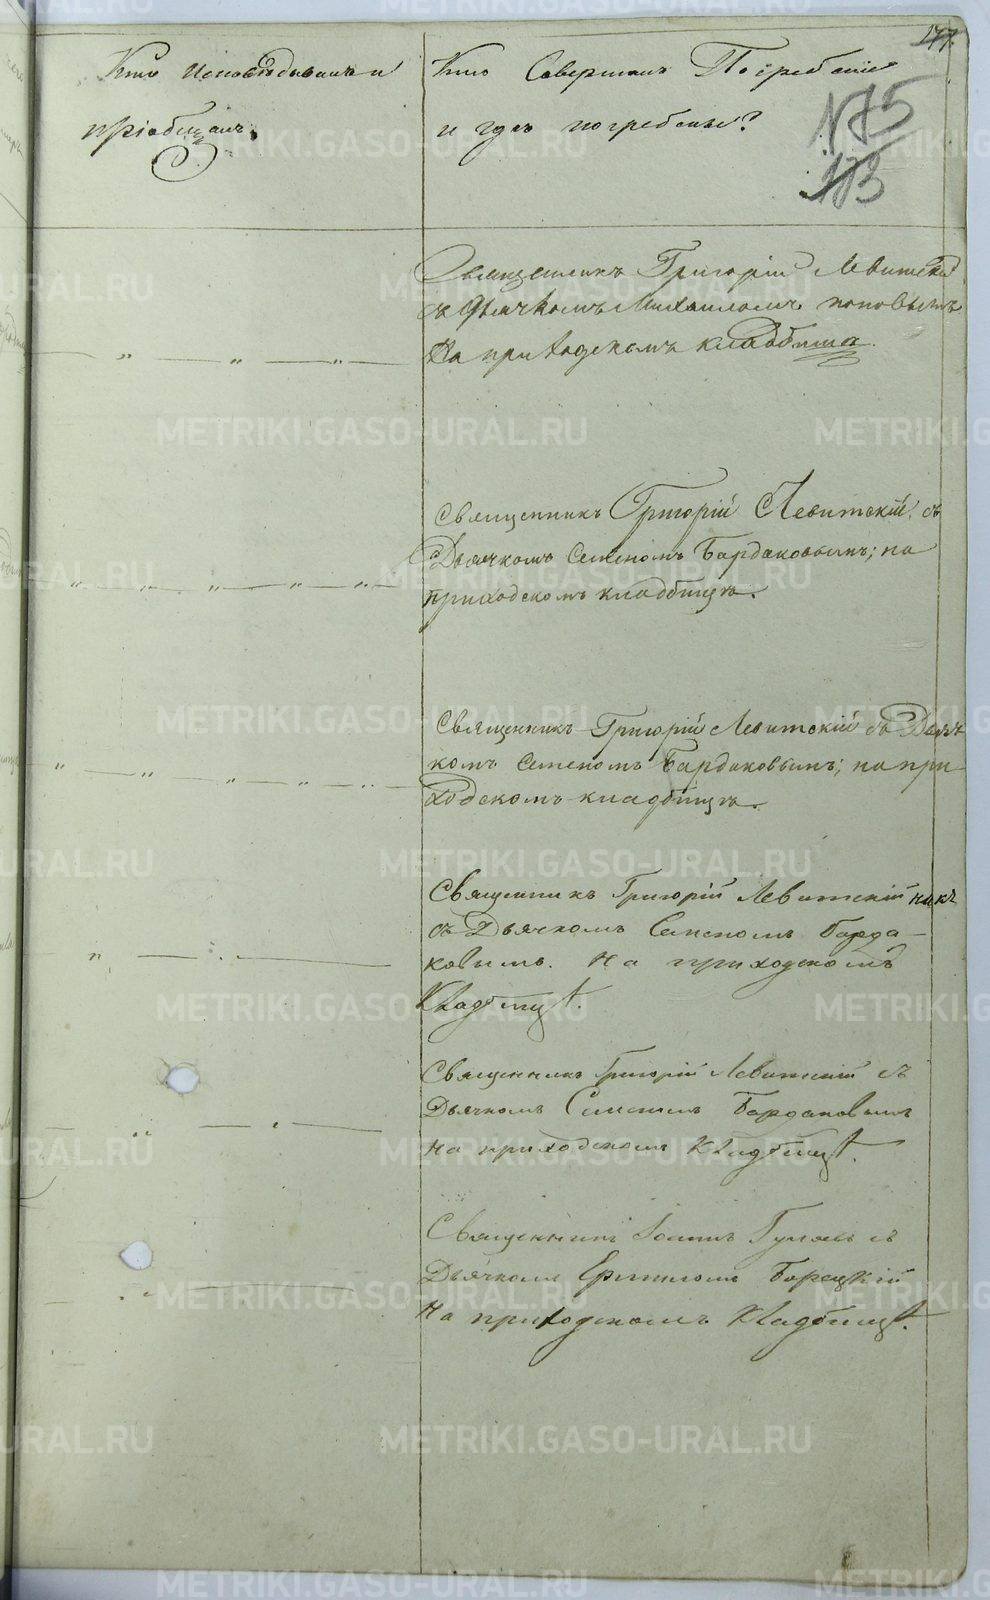 177.
Кто Исповѣдывалъ и
пріобщалъ.
Кто Совершалъ Погребеніе
и гдѣ погребены?
N 75
173
Священникъ Григорій Левитскій
съ Дьячкомъ Михаиломъ Поповымъ
На приходскомъ кладбищѣ.
Священникъ Григорій Левитскій, съ
Дьячкомъ Семеномъ Бардаковымъ; на
приходскомъ кладбищѣ.
Священникъ Григорій Левитскій съ Дьяч
комъ Семеномъ Бардаковымъ; на при
ходскомъ кладбищѣ.
Священникъ Григорій Левитскій
съ Дьячкомъ Семеномъ Барда-
ковымъ. На приходскомъ
Кладбищѣ.
Священникъ Григорій Левитскій съ
Дьячкомъ Семеномъ Бардаковымъ
На приходскомъ Кладбищѣ.
Священникъ Іоаннъ съ
Дьячкомъ
На приходскомъ Кладбищѣ.
METRIKI.GASO-URAL.RU